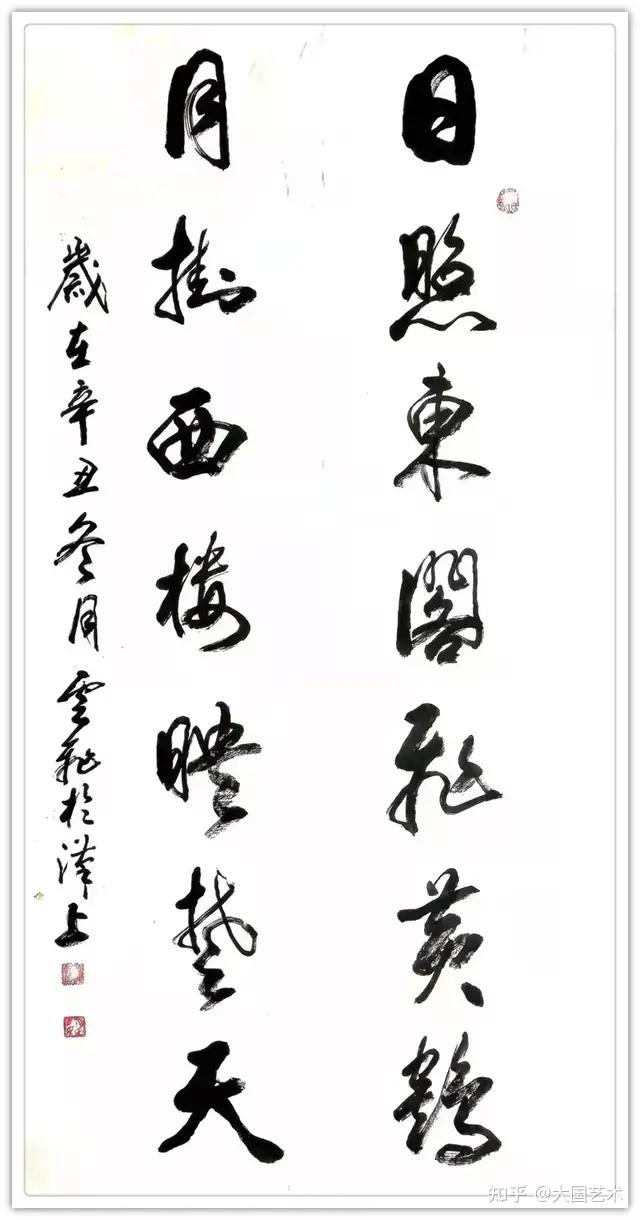 日照東閣飛黃鶴
月掛西樓映楚天
歲在辛丑冬月雲飛於漢上
知乎 @大国艺术